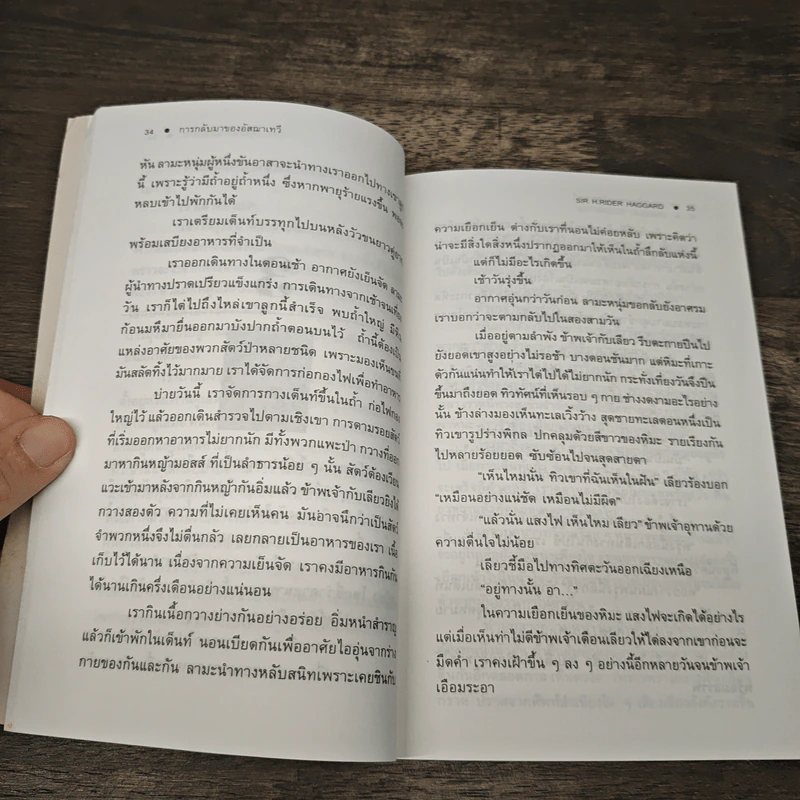 34 ● การกลับมาของอัสฌาเทวี
หัน ลามะหนุ่มผู้หนึ่งขันอาสาจะนำทางเราออกไปทาง
นี้ เพราะรู้ว่ามีถ้ำอยู่ถ้ำหนึ่ง ซึ่งหากพายุร้ายแรงขึ้น
หลบเข้าไปพักกันได้
เราเตรียมเต็นท์บรรทุกไปบนหลังวัวขนยาว
พร้อมเสบียงอาหารที่จำเป็น
เราออกเดินทางในตอนเช้า อากาศยังเย็นจัด
ผู้นำทางปราดเปรียวแข็งแกร่ง การเดินทางจากเช้าจน
วัน เราก็ไต่ไปถึงไหล่เขาลูกนี้สำเร็จ พบถ้ำใหญ่
ก้อนมหึมายื่นออกมาบังปากถ้ำตอนบนไว้ ถ้ำนี้ต้องเป็น
แหล่งอาศัยของพวกสัตว์ป่าหลายชนิด เพราะมองเห็น
มันสลัดทิ้งไว้มากมาย เราได้จัดการก่อกองไฟเพื่อทำอาหาร
บ่ายวันนี้ เราจัดการกางเต็นท์ขึ้นในถ้ำ ก่อไฟกอง
ใหญ่ไว้ แล้วออกเดินสำรวจไปตามเชิงเขา การตามรอยสัตว์
ที่เริ่มออกหาอาหารไม่ยากนัก มีทั้งพวกแพะป่า กวางที่ออก
มาหากินหญ้ามอสส์ ที่เป็นลำธารน้อย ๆ นั้น สัตว์ต้องเวียน
แวะเข้ามาหลังจากกินหญ้ากันอิ่มแล้ว ข้าพเจ้ากับเลียวยิงได้
กวางสองตัว ความที่ไม่เคยเห็นคน มันอาจนึกว่าเป็นสัตว์
จำพวกหนึ่งจึงไม่ตื่นกลัว เลยกลายเป็นอาหารของเรา เนื้อ
เก็บไว้ได้นาน เนื่องจากความเย็นจัด เราคงมีอาหารกินกัน
ได้นานเกินครึ่งเดือนอย่างแน่นอน
เรากินเนื้อกวางย่างกันอย่างอร่อย อิ่มหนำสำราญ
แล้วก็เข้าพักในเต็นท์ นอนเบียดกันเพื่ออาศัยไออุ่นจากร่าง
กายของกันและกัน ลามะนำทางหลับสนิทเพราะเคยชินกับ
SIR H.RIDER HAGGARD ● 35
ความเยือกเย็น ต่างกับเราที่นอนไม่ค่อยหลับ เพราะคิดว่า
น่าจะมีสิ่งใดสิ่งหนึ่งปรากฏออกมาให้เห็นในถ้ำลึกลับแห่งนี้
แต่ก็ไม่มีอะไรเกิดขึ้น
เช้าวันรุ่งขึ้น
อากาศอุ่นกว่าวันก่อน ลามะหนุ่มขอกลับยังอาศรม
เราบอกว่าจะตามกลับไปในสองสามวัน
เมื่ออยู่ตามลำพัง ข้าพเจ้ากับเลียว รีบตะกายปีนไป
ยังยอดเขาสูงอย่างไม่รอช้า บางตอนชันมาก แต่หิมะที่เกาะ
ตัวกันแน่นทำให้เราไต่ไปได้ไม่ยากนัก กระทั่งเที่ยงวันจึงปีน
ขึ้นมาถึงยอด ทิวทัศน์ที่เห็นรอบ ๆ กาย ช่างงดงามอะไรอย่าง
นั้น ข้างล่างมองเห็นทะเลเวิ้งว้าง สุดชายทะเลตอนหนึ่งเป็น
ทิวเขารูปร่างพิกล ปกคลุมด้วยสีขาวของหิมะ รายเรียงกัน
ไปหลายร้อยยอด ซับซ้อนไปจนสุดสายตา
“เห็นไหมนั่น ทิวเขาที่ฉันเห็นในฝัน” เลียวร้องบอก
“เหมือนอย่างแน่ชัด เหมือนไม่มีผิด”
“แล้วนั่น แสงไฟ เห็นไหม เลียว” ข้าพเจ้าอุทานด้วย
ความตื่นใจไม่น้อย
เลียวชี้มือไปทางทิศตะวันออกเฉียงเหนือ
“อยู่ทางนั้น อา...”
ในความเยือกเย็นของหิมะ แสงไฟจะเกิดได้อย่างไร
แต่เมื่อเห็นท่าไม่ดีข้าพเจ้าเตือนเลียวให้ไต่ลงจากเขาก่อนจะ
มืดค่ำ เราคงเฝ้าขึ้น ๆ ลง ๆ อย่างนี้อีกหลายวันจนข้าพเจ้า
เอือมระอา